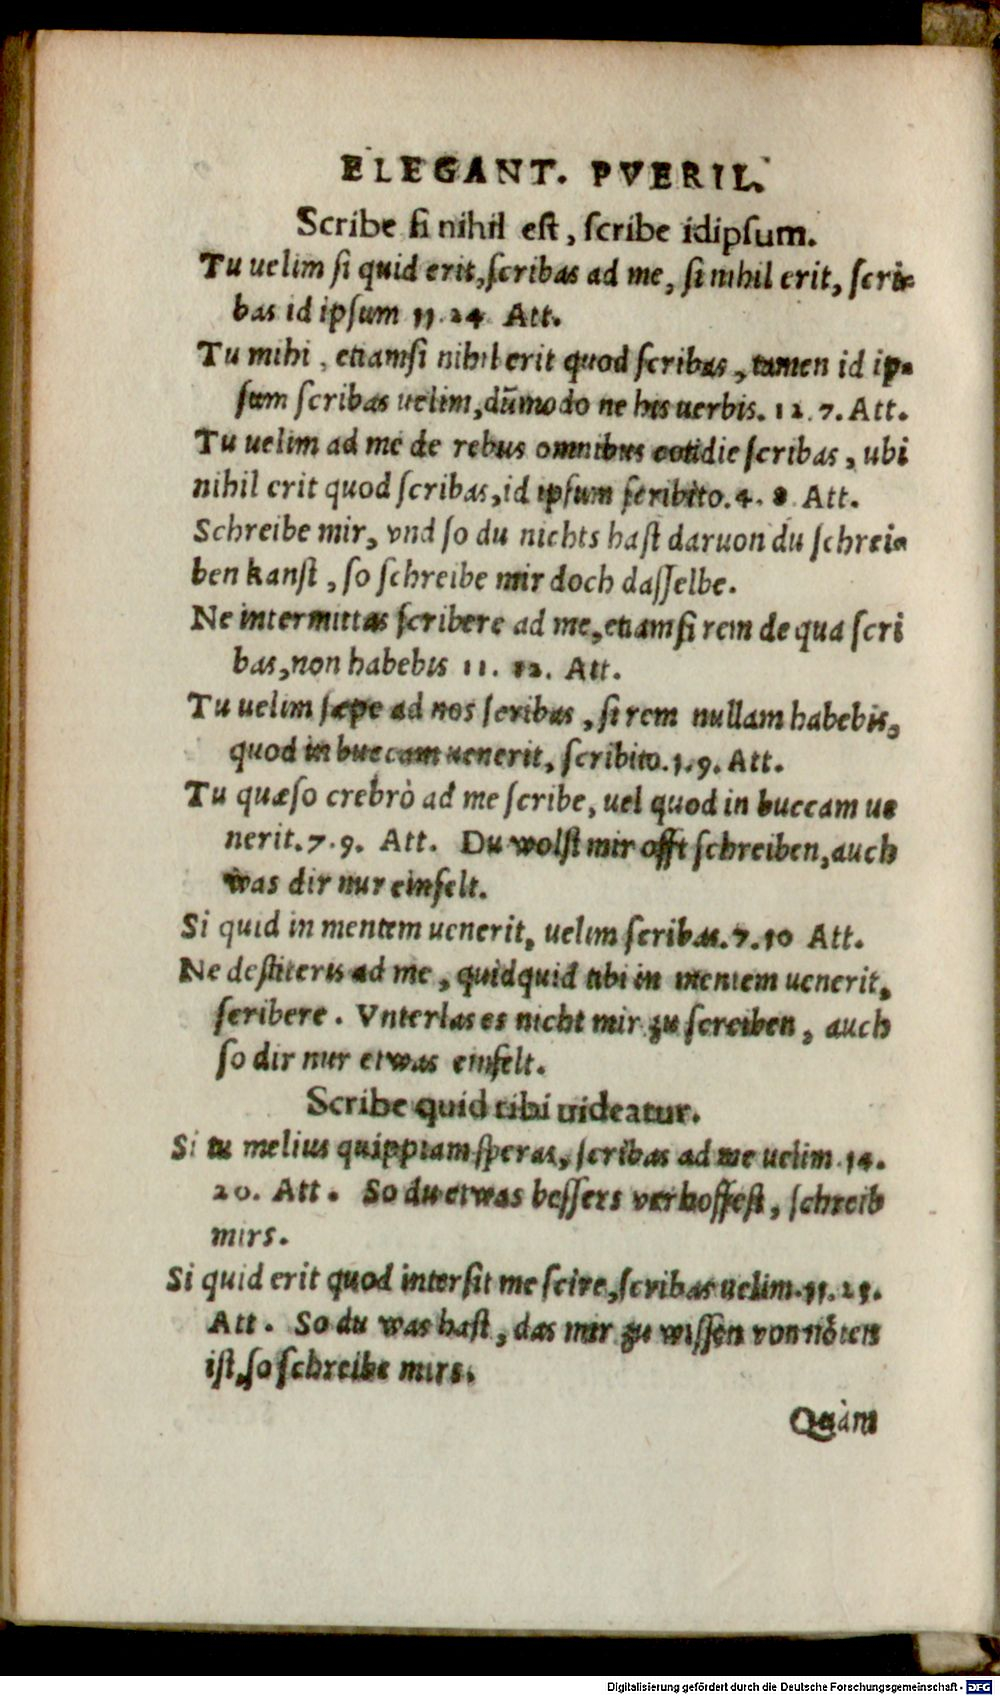 ELEGANT. PVERIL.
Scribe ſi nihil eſt, ſcribe idipſum.
Tu uelim ſi quid erit, ſcribas ad me, ſi nihil erit, ſcri-
bas id ipſum 11.24 Att.
Tu mihi, etiamſi nihil erit quod ſcribas, tamen id ip-
ſum ſcribas uelim, dūmodo ne his uerbis. 12.7. Att.
Tu uelim ad me de rebus omnibus cotidie ſcribas, ubi
nihil erit quod ſcribas, id ipſum ſcribito. 4. 8 Att.
Schreibe mir, vnd ſo du nichts haſt daruon du ſchrei-
ben kanſt, ſo ſchreibe mir doch daſſelbe.
Ne intermittas ſcribere ad me, etiamſi rem de qua ſcri
bas, non habebis 11. 12. Att.
Tu uelim ſæpe ad nos ſcribas, ſi rem nullam habebis,
quod in buccam uenerit, ſcribito. 1.9. Att.
Tu quæſo crebrò ad me ſcribe, uel quod in buccam ue
nerit. 7.9. Att. Du wolſt mir offt ſchreiben, auch
was dir nur einfelt.
Si quid in mentem uenerit, uelim ſcribas. 7.10 Att.
Ne deſtiteris ad me, quidquid tibi in mentem uenerit,
ſcribere. Vnterlas es nicht mir zu ſcreiben, auch
ſo dir nur etwas einfelt.
Scribe quid tibi uideatur.
Si tu melius quippiam ſperas, ſcribas ad me uelim. 14.
20. Att. So du etwas beſſers verhoffeſt, ſchreib
mirs.
Si quid erit quod interſit me ſcire, ſcribas uelim. 11.25.
Att. So du was haſt, das mir zu wiſſen von nöten
iſt, ſo ſchreibe mirs.
Quàm
Digitalisierung gefördert durch die Deutsche Forschungsgemeinschaft - DFG